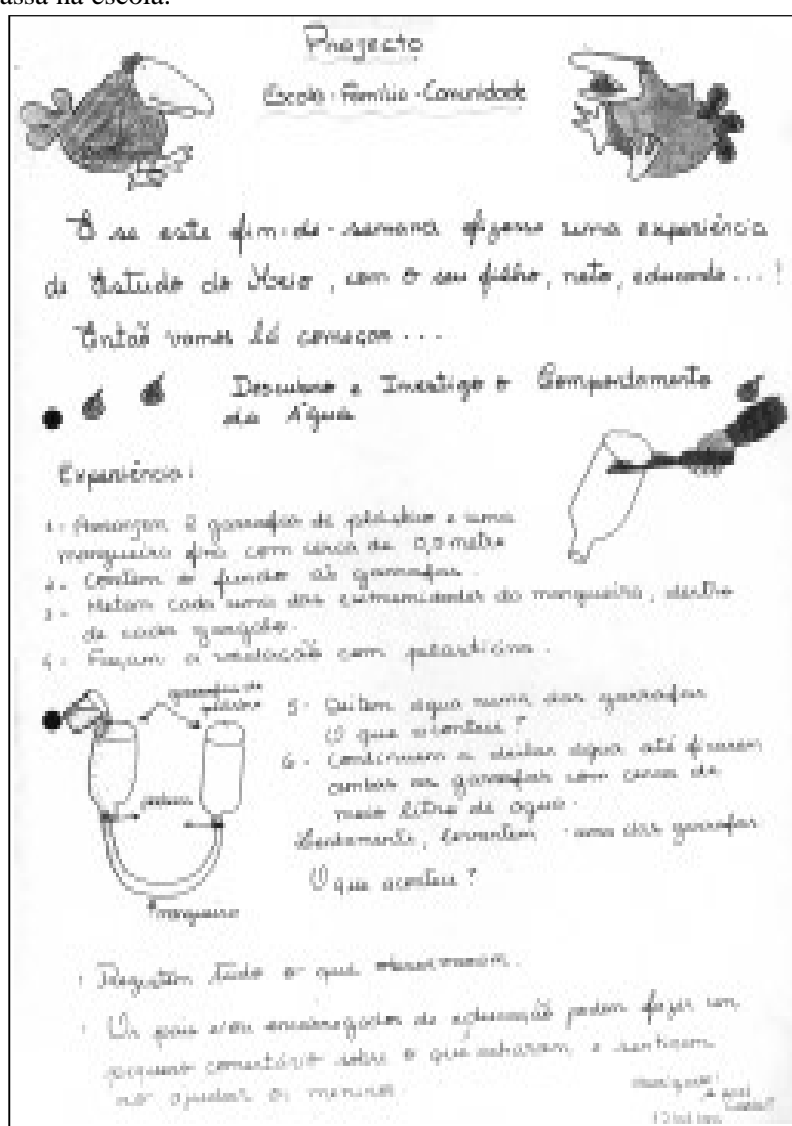 assa na escola.
Projecto
Escola - Família - Comunidade
E se este fim-de-semana fizesse uma experiência
de Estudo do Meio, com o seu filho, neto, educando...!
Então vamos lá começar...
Descubro e Investigo o Comportamento
da Água
Experiência:
1- Arranjem 2 garrafas de plástico e uma
mangueira fina com cerca de 0,5 metro
2- Cortem o fundo às garrafas.
3- Metam cada uma das extremidades da mangueira, dentro
de cada gargalo.
4- Façam a vedação com plasticina.
garrafas de
plástico
mangueira
5- Deitem água numa das garrafas
O que acontece?
6- Continuem a deitar água até ficarem
ambas as garrafas com cerca de
meio litro de água.
Lentamente, levantem uma das garrafas
O que acontece?
Registem tudo o que observaram.
Os pais e/ou encarregados de educação podem fazer um
pequeno comentário sobre o que acharam e sentiram
ao ajudar os meninos